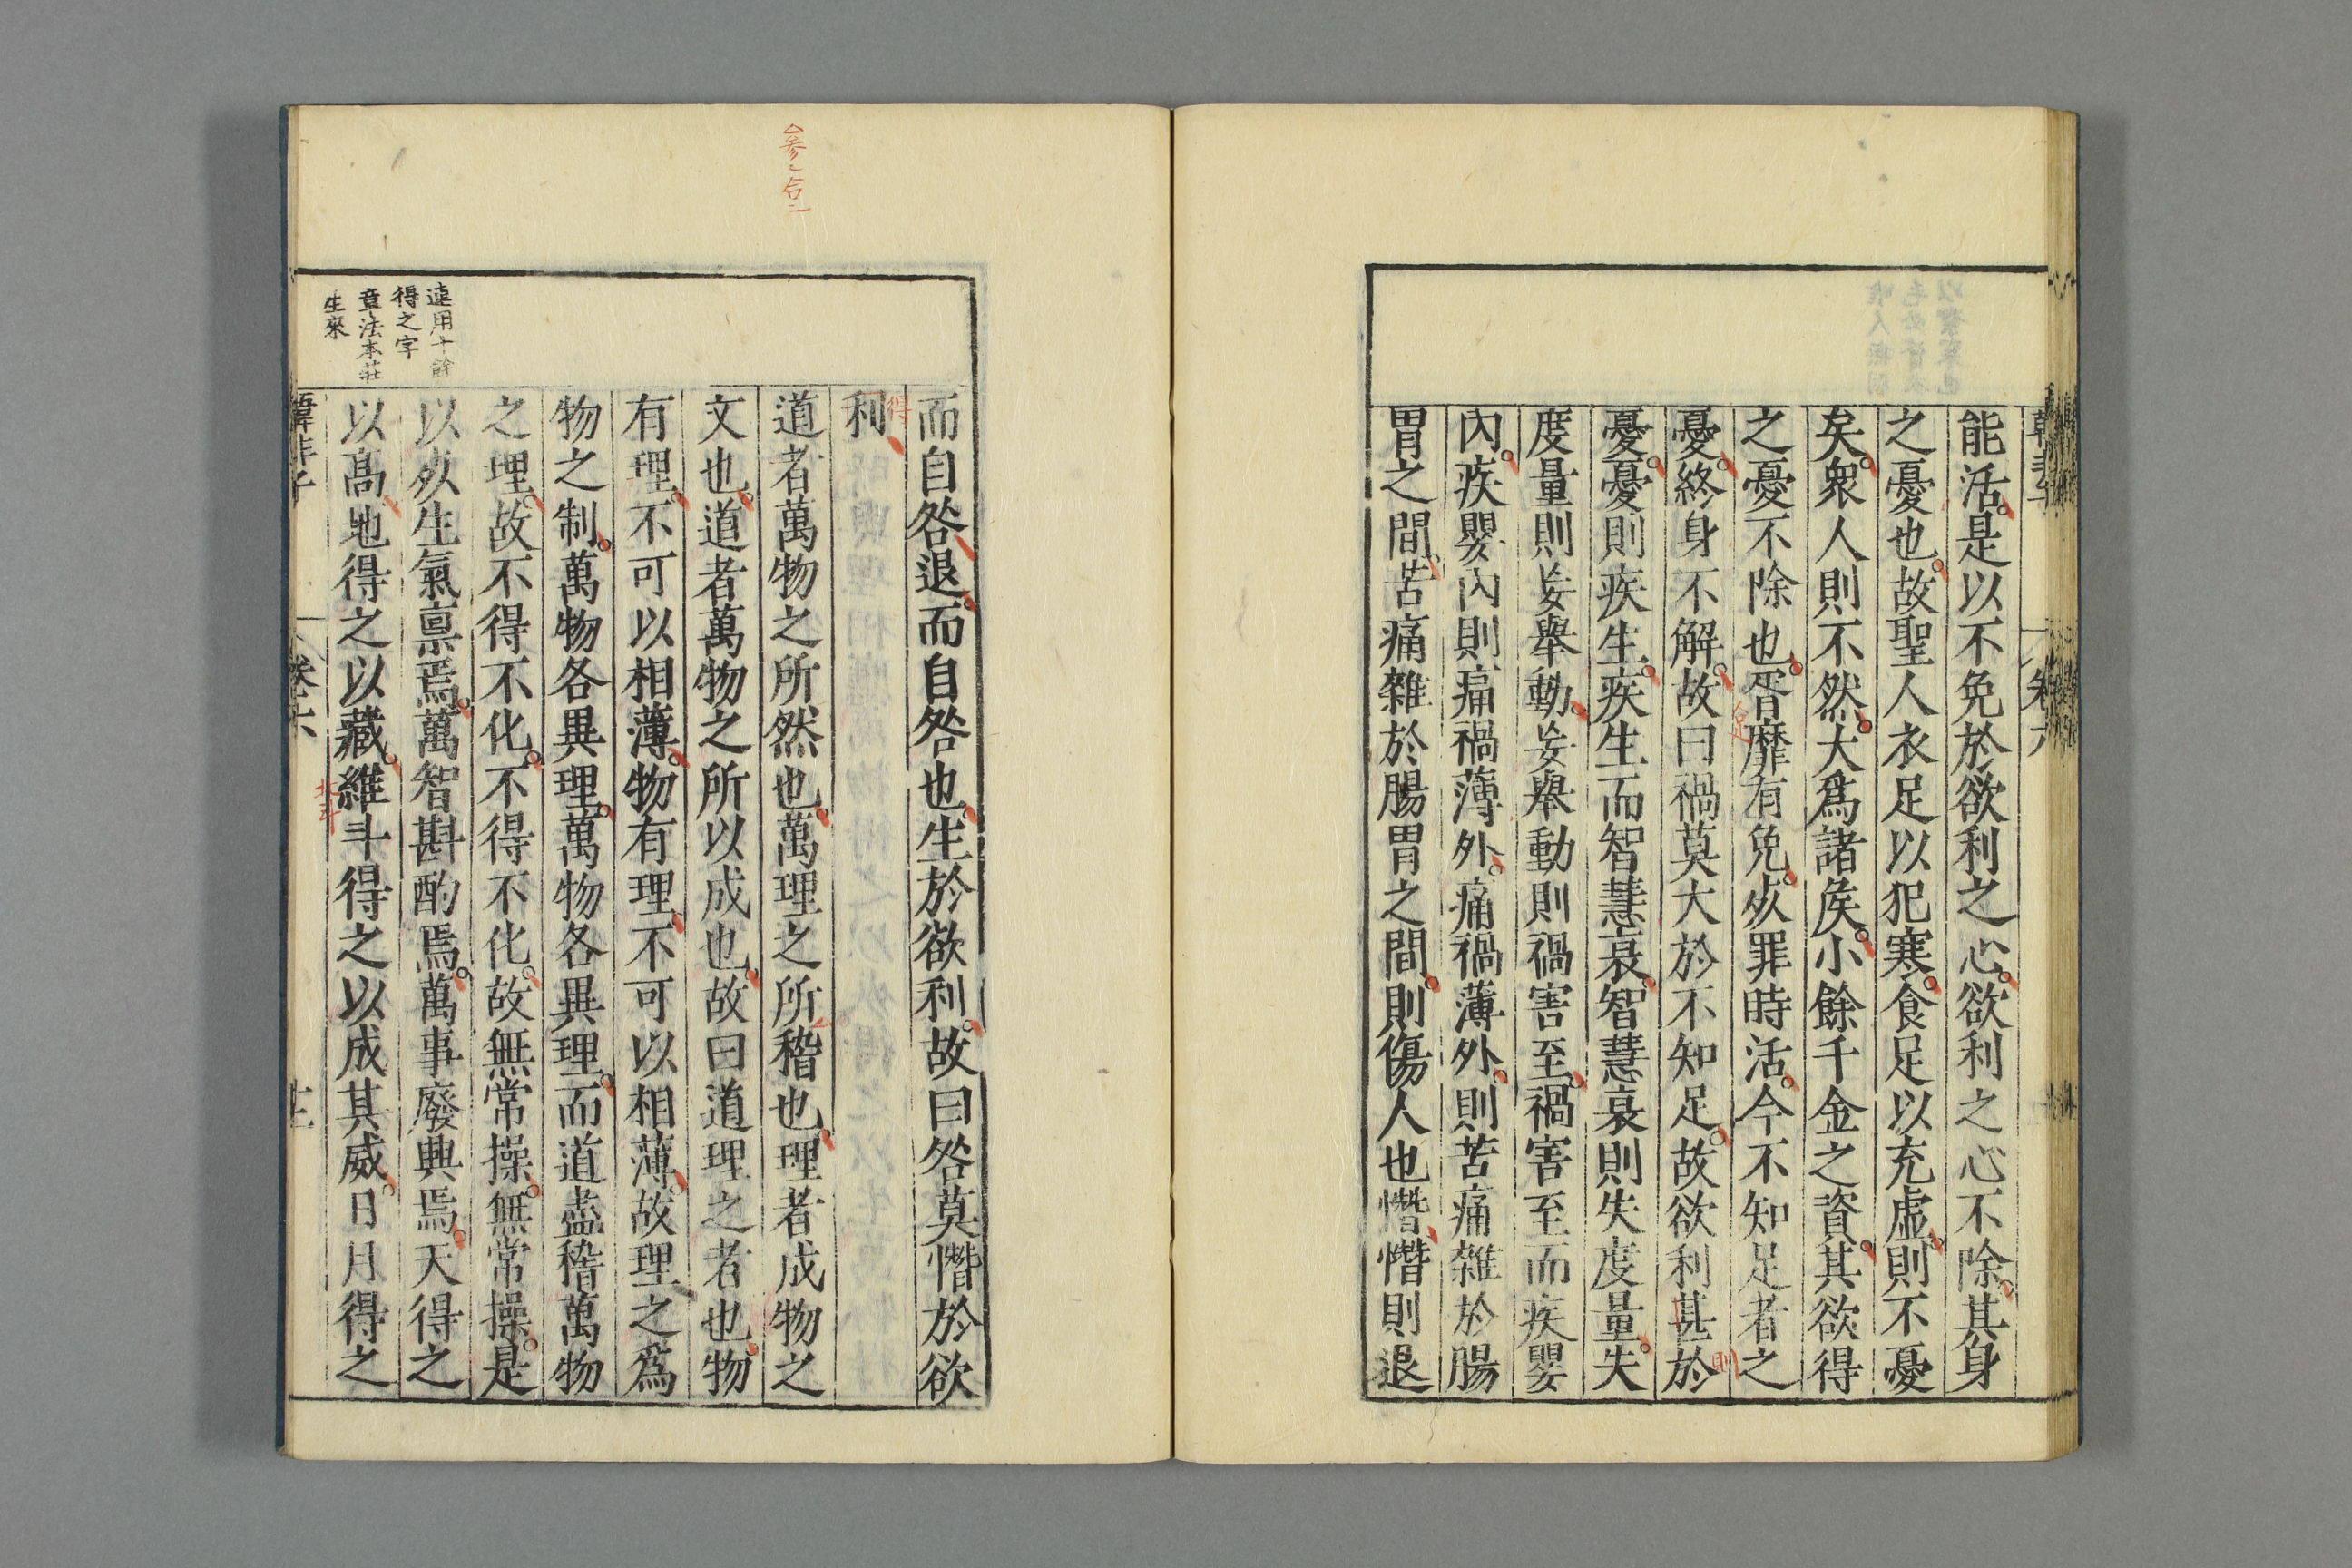 能活是以不免於欲利之心欲利之心不除其身
之憂也故聖人衣足以犯寒食足以充虛則不憂
矣衆人則不然大爲諸矦小餘千金之資其欲得
之憂不除也胥靡有免歺罪時活今不知足者之
憂終身不解故曰禍莫大於不知足故欲利甚於
則
憂憂則疾生疾生而智慧衰智慧衰則失度量失
度量則妄舉動妄舉動則禍害至禍害至而疾嬰
內疾嬰內則痛禍薄外痛禍薄外則苦痛雜於腸
胃之間苦痛雜於腸胃之間則傷人也憯憯則退
而自咎退而自咎也生於欲利故曰咎莫憯於欲
利
得
道者萬物之所然也萬理之所稽也理者成物之
文也道者萬物之所以成也故曰道理之者也物
有理不可以相薄物有理不可以相薄故理之爲
物之制萬物各異理萬物各異理而道盡稽萬物
之理故不得不化不得不化故無常操無常操是
以歺生氣禀焉萬智斟酌焉萬事廢興焉天得之
以高地得之以藏維斗得之以成其威日月得之
連用十餘
得之字
章法本莊
生來
韓非子 卷六